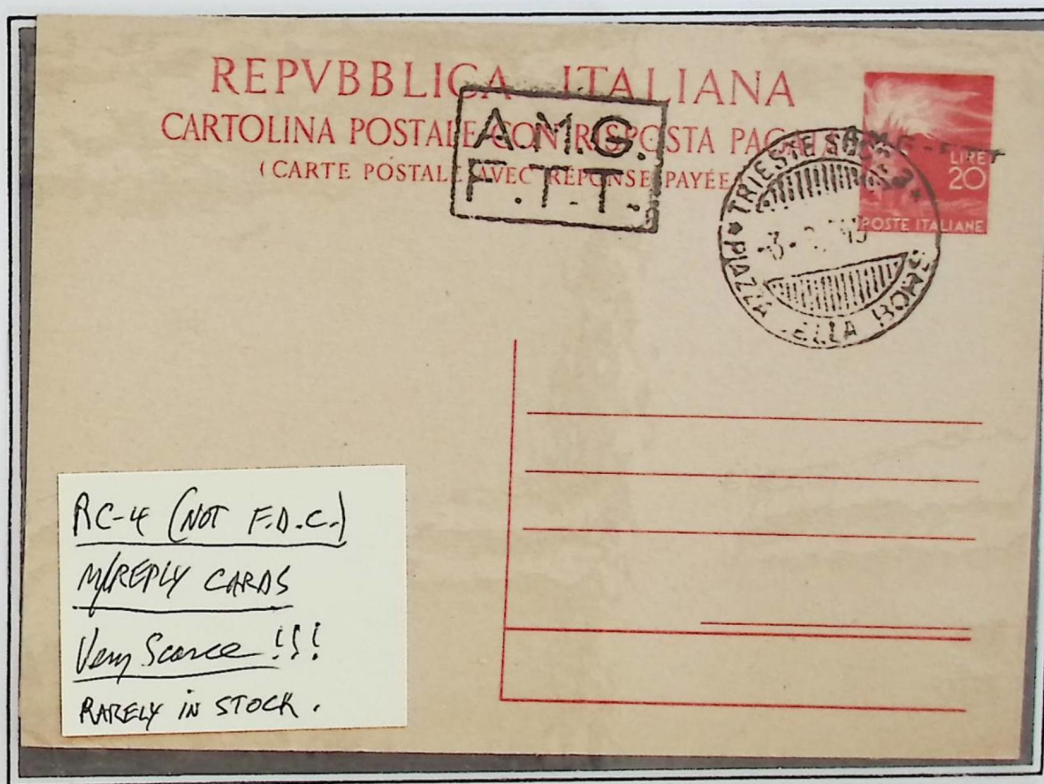 REPVBBLICA ITALIANA
CARTOLINA POSTALE CON RISPOSTA PAGATA
(CARTE POSTALE AVEC RÉPONSE PAYÉE)
A.M.G.
F.T.T.
A.M.G.-F.T.T.
LIRE
20
POSTE ITALIANE
TRIESTE
PIAZZA DELLA BORSA
RC-4 (NOT F.D.C.)
M/REPLY CARDS
Very Scarce !!!
RARELY IN STOCK.